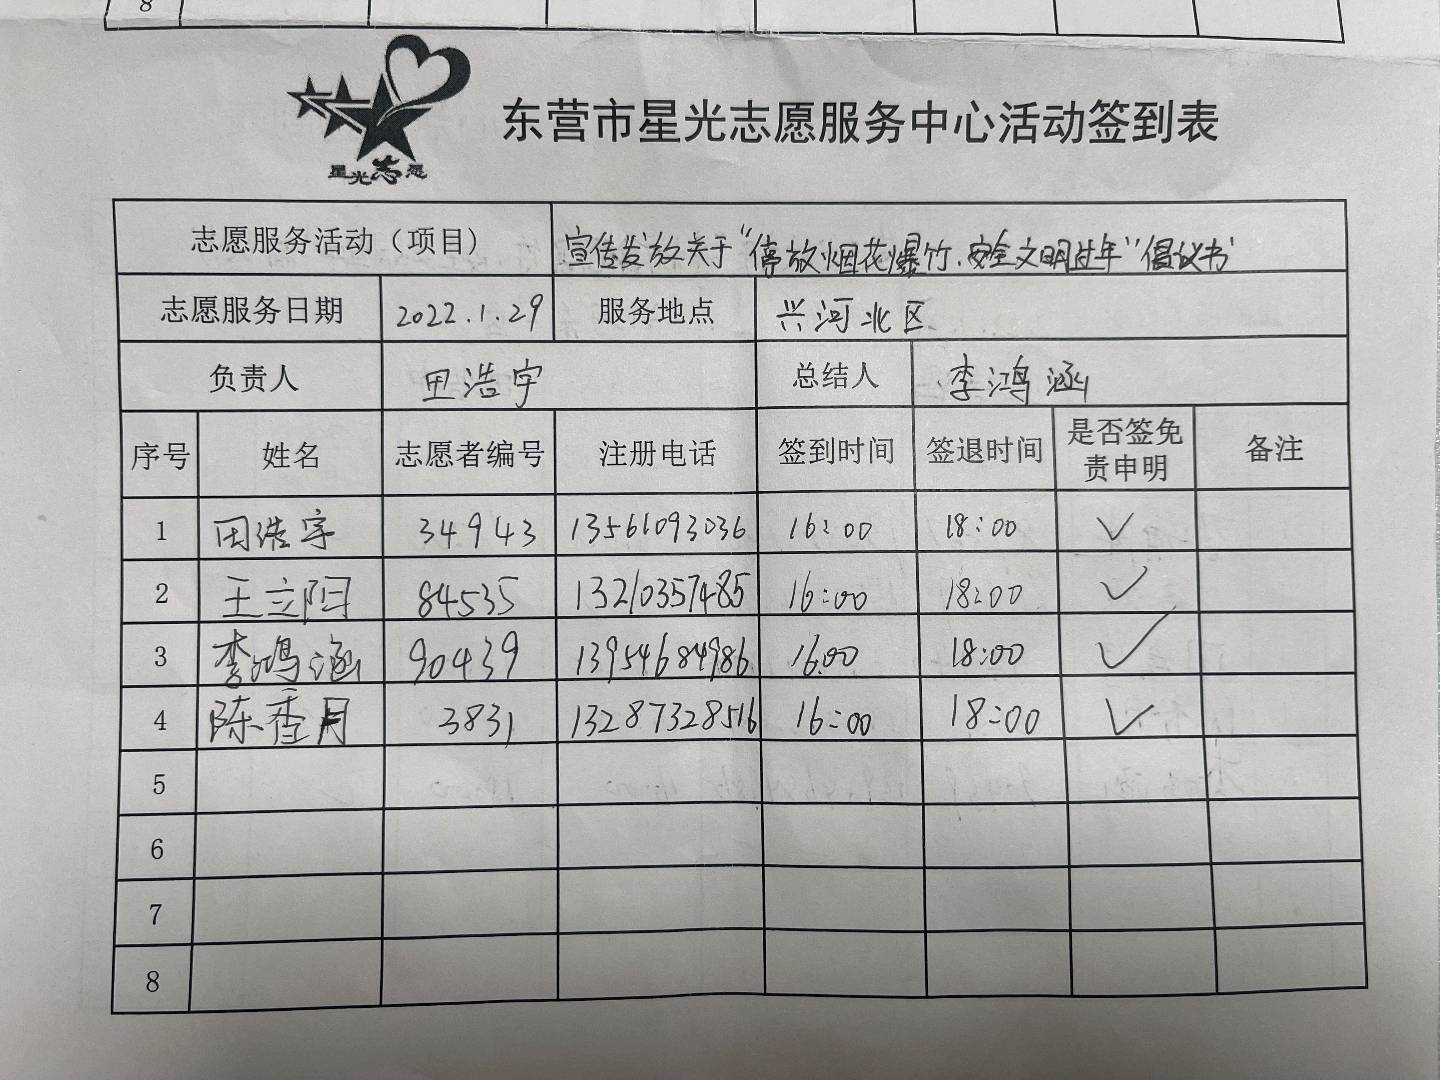 8
星光志愿
东营市星光志愿服务中心活动签到表
志愿服务活动（项目） 宣传发放关于“停放烟花爆竹.安全文明过年”倡议书
志愿服务日期 2022.1.29 服务地点 兴河北区
负责人 田浩宇 总结人 李鸿涵
序号 姓名 志愿者编号 注册电话 签到时间 签退时间 是否签免责申明 备注
1 田浩宇 34943 13561093036 16:00 18:00 ✓
2 王立阳 84535 13210357485 16:00 18:00 ✓
3 李鸿涵 90439 13954684986 16:00 18:00 ✓
4 陈香月 3831 13287328516 16:00 18:00 ✓
5
6
7
8